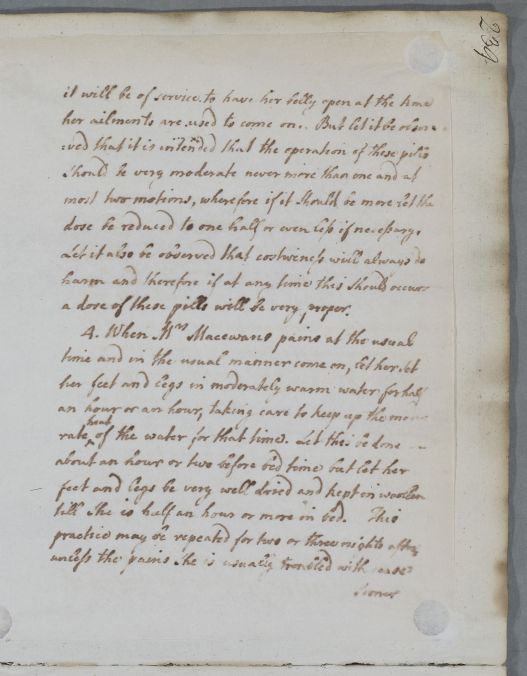 284
it will be of service to have her belly open at the time
her ailments are used to come on. But let it be obser
ved that it is intended that the operation of these pills
should be very moderate never more than one and at
most two motions, wherefore if it should be more let the
dose be reduced to one half or even less if necessary.
Let it also be observed that costiveness will always do
harm and therefore if at any time this should occur
a dose of these pills will be very proper.
4. When Mrs Macewans pains at the usual
time and in the usual manner come on, let her set
her feet and legs in moderately warm water for half
an hour or an hour, taking care to keep up the mode
rate heat of the water for that time. Let this be done
about an hour or two before bed time but let her
feet and legs be very well dried and kept in woollen
till she is half an hour or more in bed. This
practice may be repeated for two or three nights after
unless the pains she is usually troubled with cease